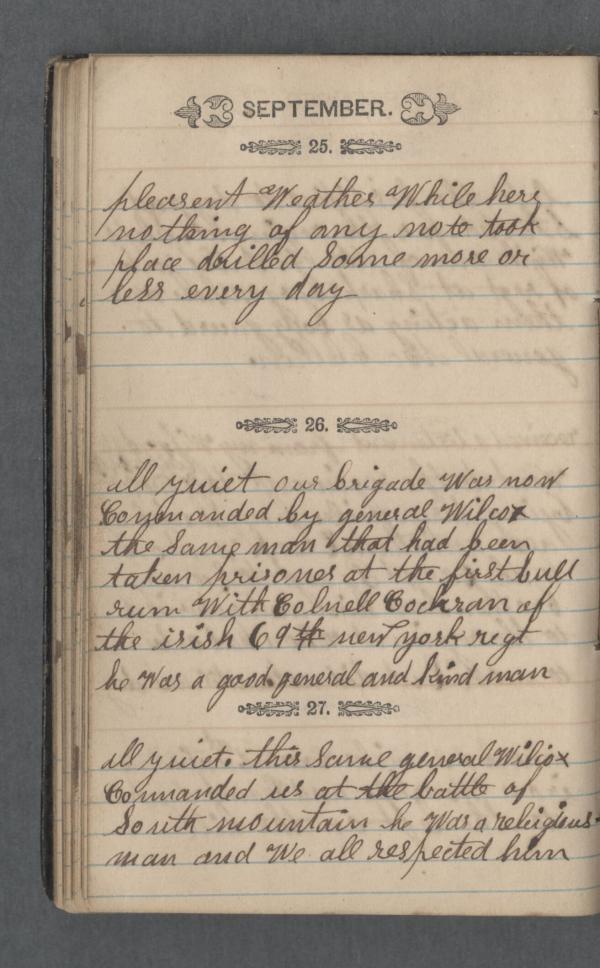 SEPTEMBER.
25.
pleasent Weather While here
nothing of any note took
place drilled Some more or
less every day
26.
all quiet our brigade Was now
Commanded by general Wilcox
the Same man that had been
taken prisoner at the first bull
rum With Colnell Cochran of
the irish 69th new york regt
he Was a good general and kind man
27.
all quiet. this Same general Wilcox
Commanded us at the battle of
South mountain he Was a religious
man and We all respected him